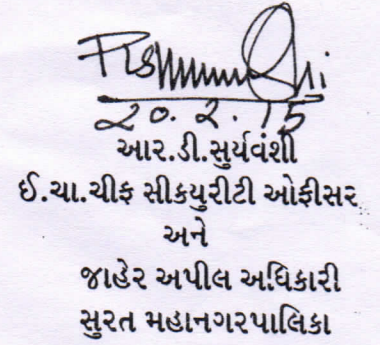 20.2.15
આર.ડી.સુર્યવંશી
ઈ.ચા.ચીફ સીકયુરીટી ઓફીસર
અને
જાહેર અપીલ અધિકારી
સુરત મહાનગરપાલિકા